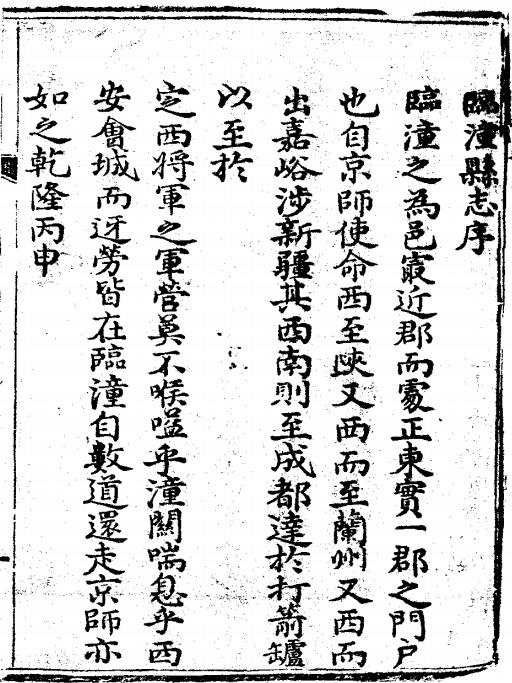 臨潼縣志序
臨潼之為邑㝡近郡而處正東實一郡之門户
也自京師使命西至陜又西而至蘭州又西而
出嘉峪涉新疆其西南則至成都達於打箭罏
以至於
定西将軍之軍營莫不喉嗌乎潼關喘息乎西
安會城而迓勞皆在臨潼自數道還走京師亦
如之乾隆丙申